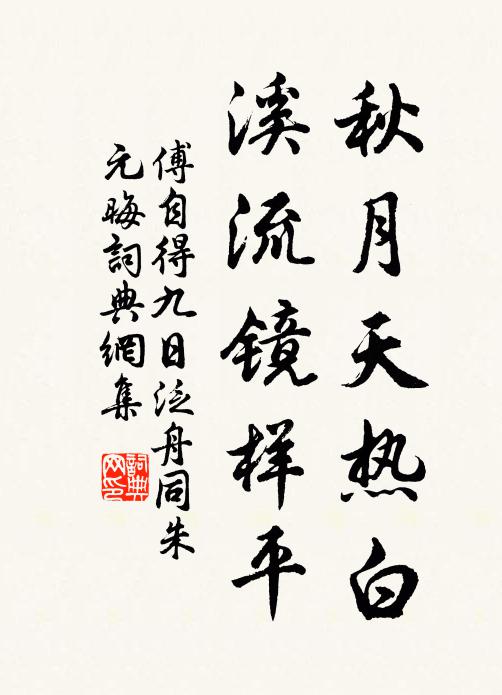 秋月天热白
溪流镜样平
傅自得九日泛舟同朱
元晦詞典網集
詞典
网印